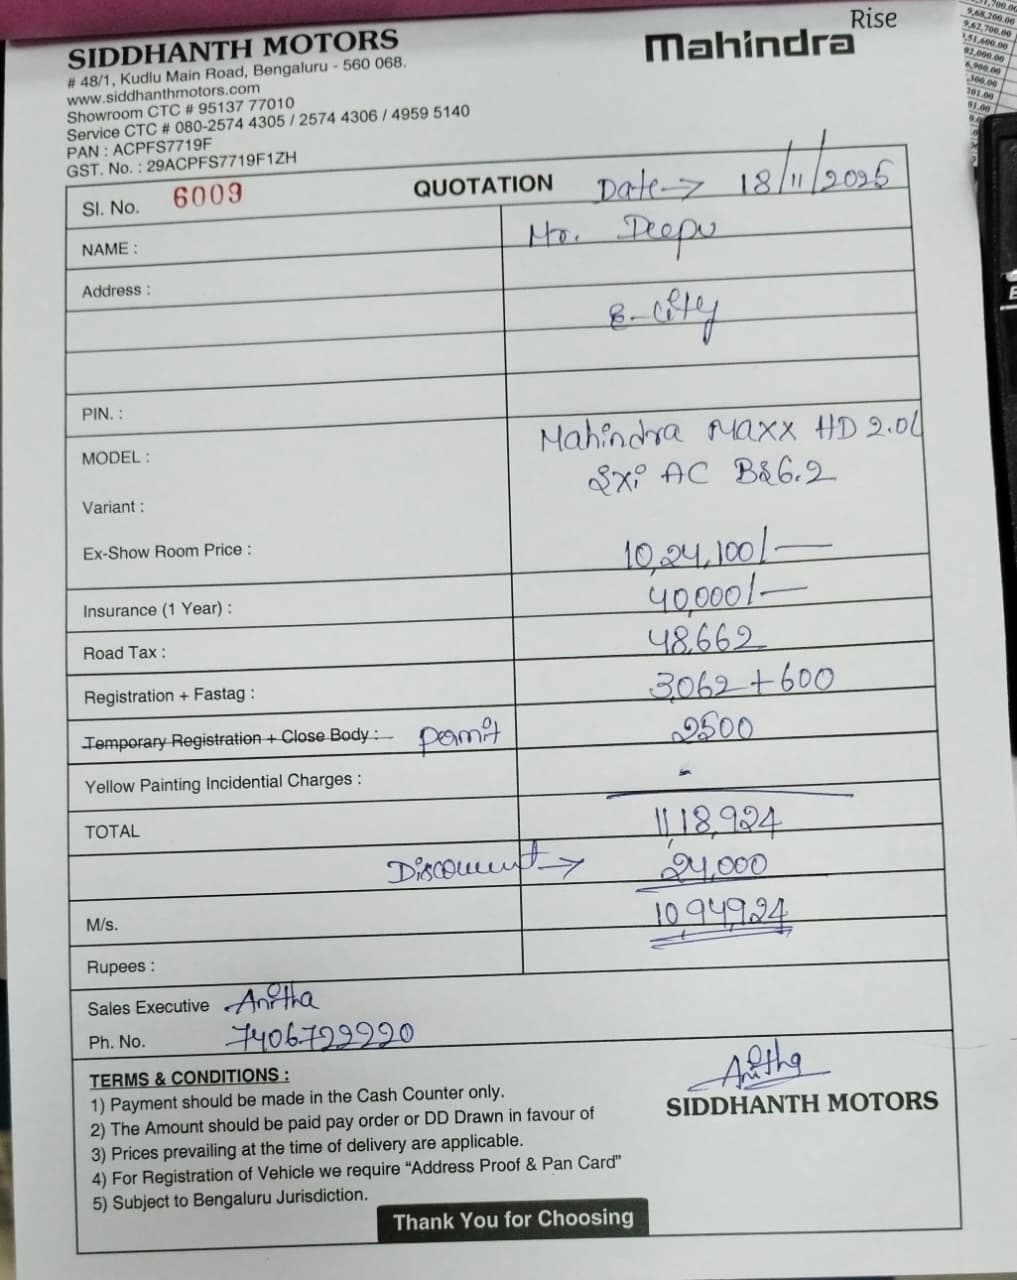 SIDDHANTH MOTORS
# 48/1, Kudlu Main Road, Bengaluru - 560 068.
www.siddhanthmotors.com
Showroom CTC # 95137 77010
Service CTC # 080-2574 4305 / 2574 4306 / 4959 5140
PAN : ACPFS7719F
GST. No. : 29ACPFS7719F1ZH
Mahindra Rise
Sl. No. 6009 QUOTATION Date → 18/11/2025
NAME : Mr. Deepu
Address :
E-City
PIN. :
MODEL : Mahindra Maxx HD 2.0L
Variant : SXi AC BS6.2
Ex-Show Room Price : 10,24,100/-
Insurance (1 Year) : 40,000/-
Road Tax : 48,662
Registration + Fastag : 3,062 + 600
Temporary Registration + Close Body : Permit 2500
Yellow Painting Incidential Charges : -
TOTAL 11,18,924
Discount → 24,000
M/s. 10,94,924
Rupees :
Sales Executive Anitha
Ph. No. 7406722220
TERMS & CONDITIONS :
1) Payment should be made in the Cash Counter only.
2) The Amount should be paid pay order or DD Drawn in favour of
3) Prices prevailing at the time of delivery are applicable.
4) For Registration of Vehicle we require "Address Proof & Pan Card"
5) Subject to Bengaluru Jurisdiction.
Anitha
SIDDHANTH MOTORS
Thank You for Choosing
9,68,200.00
9,62,700.00